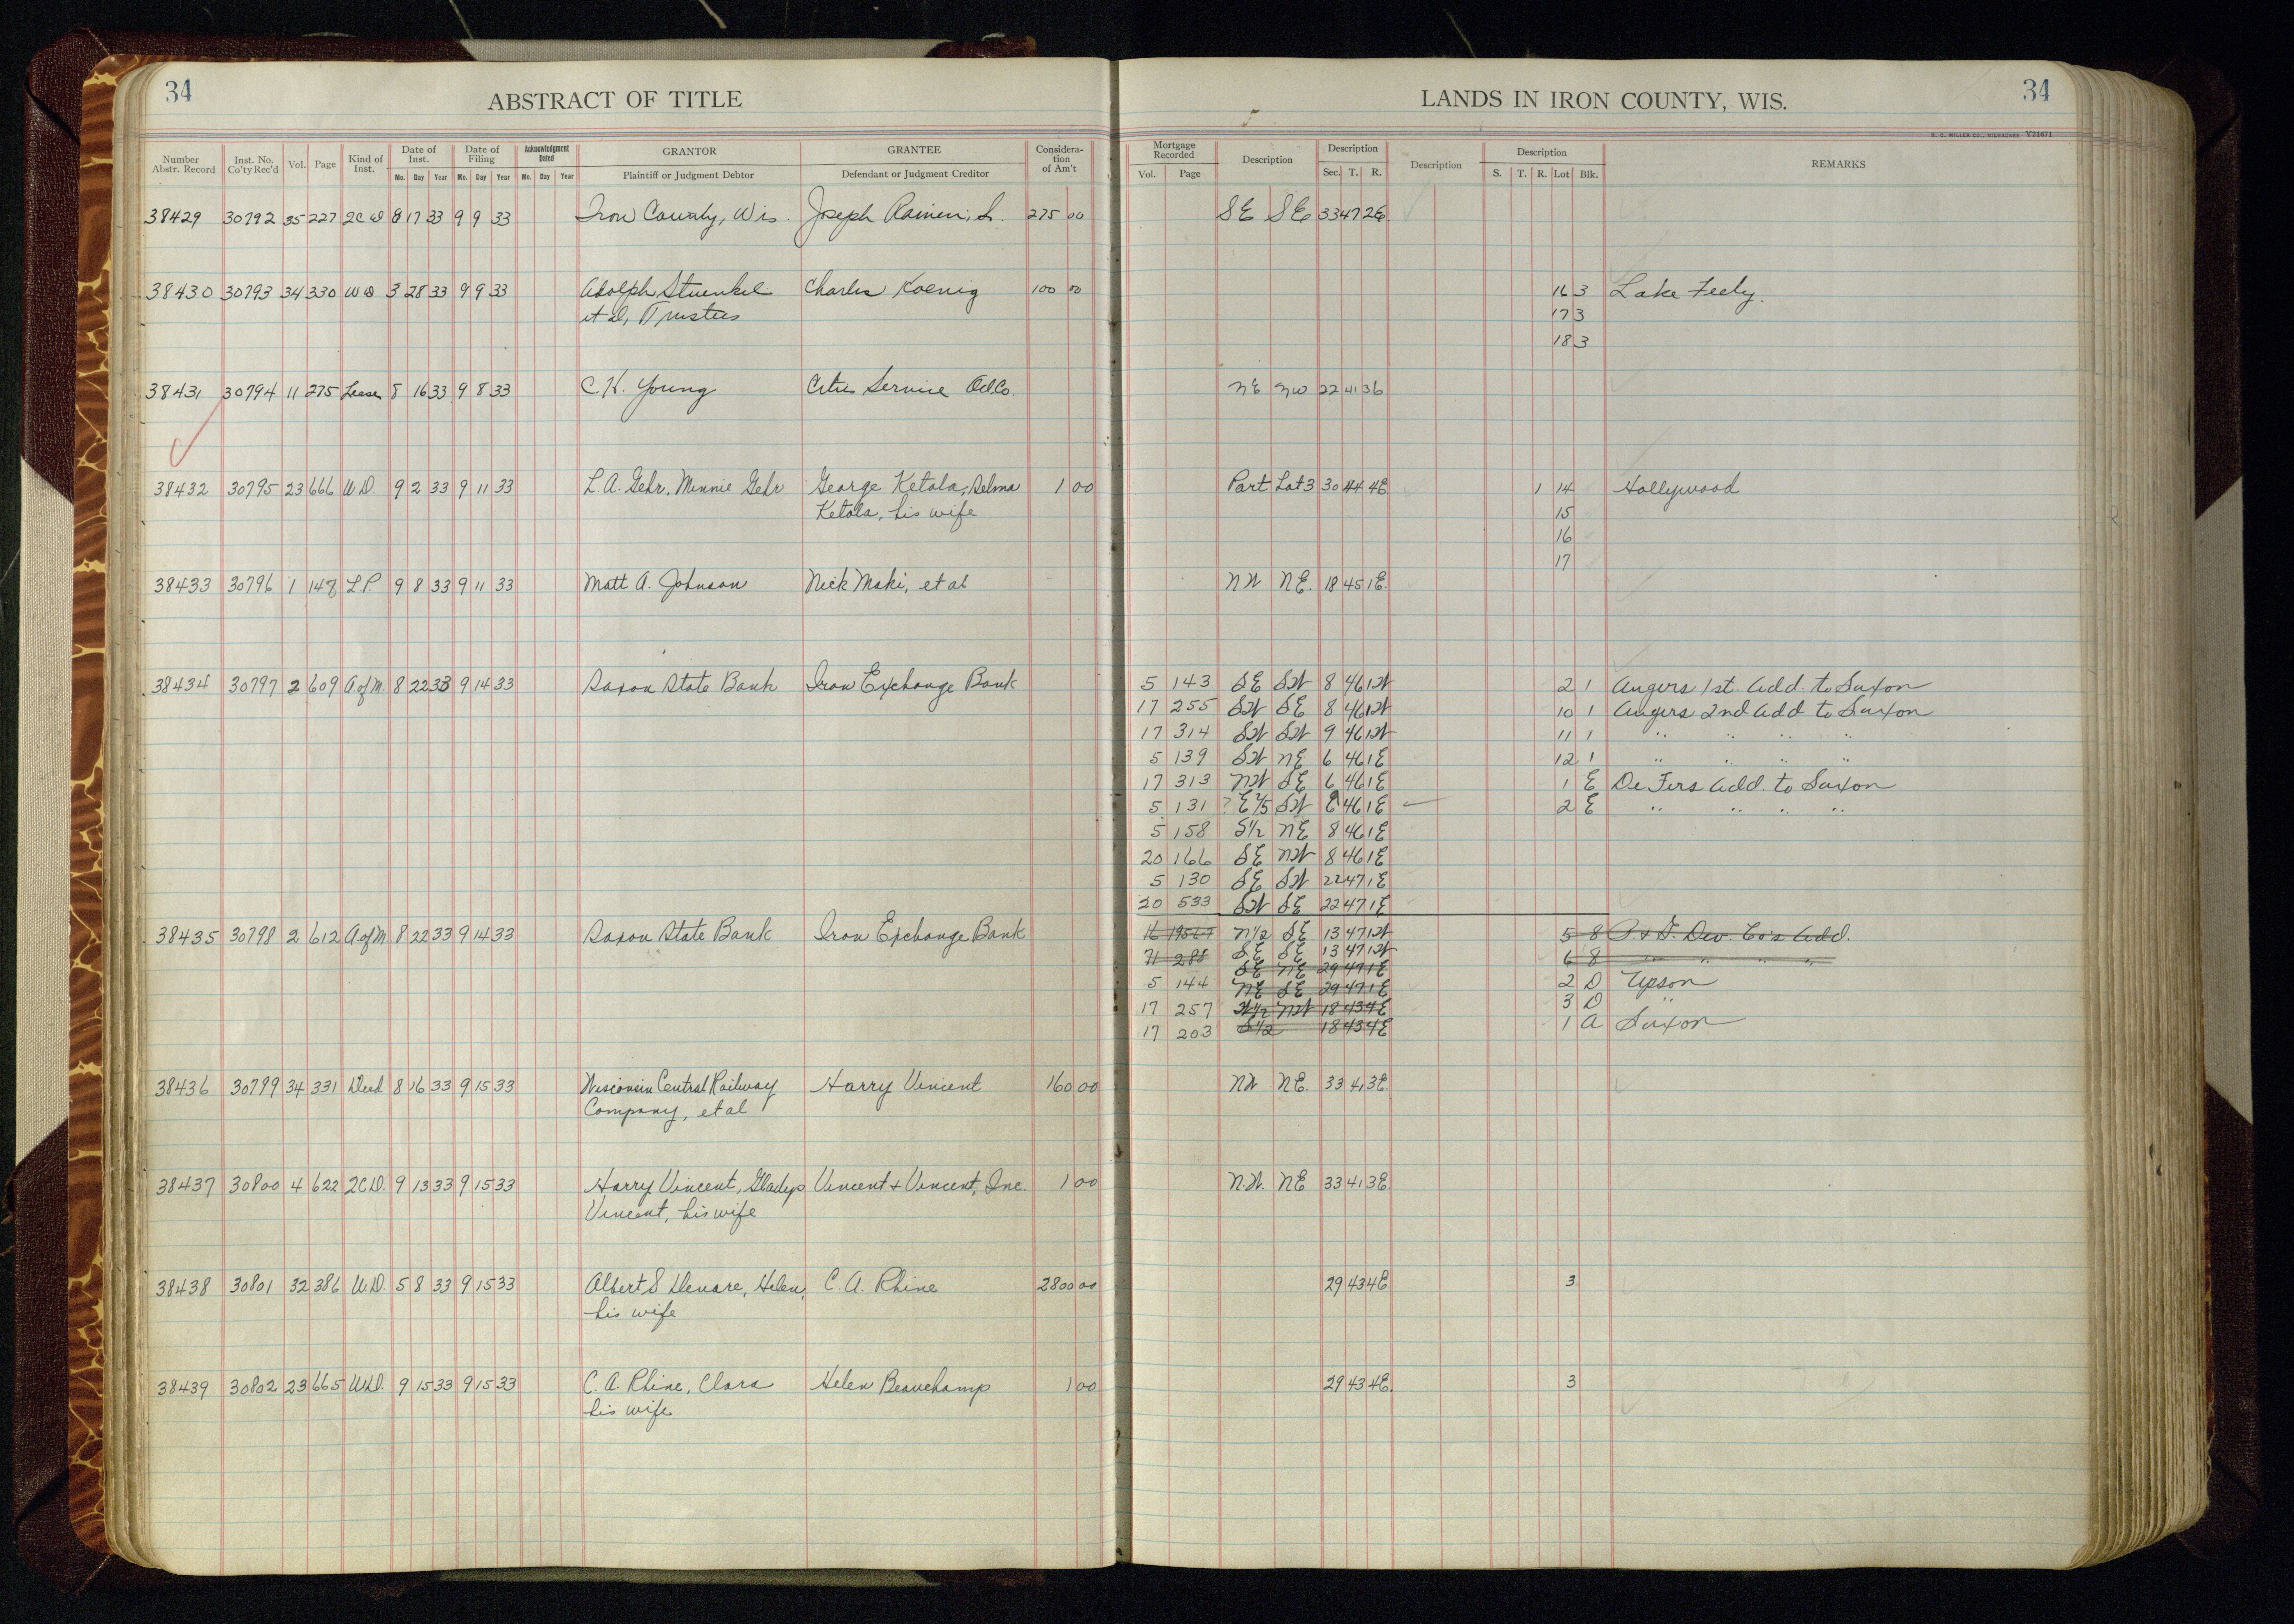 34
ABSTRACT OF TITLE
Number Abstr. Record Inst. No. Co'ty Rec'd Vol. Page Kind of Inst. Date of Inst. Mo. Day Year Date of Filing Mo. Day Year Acknowledgment Dated Mo. Day Year GRANTOR Plaintiff or Judgment Debtor GRANTEE Defendant or Judgment Creditor Considera- tion of Am't
38429 30792 35 227 2C D 8 17 33 9 9 33 Iron County, Wis. Joseph 275 00
38430 30793 34 330 W D 3 28 33 9 9 33 Adolph Stuenkel Charles Koenig 100 00
et al, Trustees
38431 30794 11 275 Lease 8 16 33 9 8 33 C H. Young Cities Service Oil Co.
38432 30795 23 666 W.D. 9 2 33 9 11 33 L.A. Gehr, Minnie Gehr George Ketola, Selma 1 00
Ketola, his wife
38433 30796 1 148 L.P. 9 8 33 9 11 33 Matt A. Johnson Nick Maki, et al
38434 30797 2 609 A of M. 8 22 33 9 14 33 Saxon State Bank Iron Exchange Bank
38435 30798 2 612 A of M 8 22 33 9 14 33 Saxon State Bank Iron Exchange Bank
38436 30799 34 331 Deed 8 16 33 9 15 33 Wisconsin Central Railway Harry Vincent 160 00
Company, et al
38437 30800 4 622 2C.D. 9 13 33 9 15 33 Harry Vincent, Gladys Vincent + Vincent, Inc. 1 00
Vincent, his wife
38438 30801 32 386 W.D. 5 8 33 9 15 33 Albert S Denare, Helen, C. A. Rhine 2800 00
his wife
38439 30802 23 665 W.D. 9 15 33 9 15 33 C. A. Rhine, Clara Helen Beauchamp 1 00
his wife
LANDS IN IRON COUNTY, WIS.
34
H. C. MILLER CO., MILWAUKEE V21671
Mortgage Recorded Vol. Page Description Description Sec. T. R. Description Description S. T. R. Lot Blk. REMARKS
SE SE 33 47 2E
16 3 Lake Feely.
17 3
18 3
NE NW 22 41 3E
Part Lot 3 30 44 4E 1 14 Hollywood
15
16
17
NW NE. 18 45 1E.
5 143 SE SW 8 46 1W 2 1 Angers 1st. Add. to Saxon
17 255 SW SE 8 46 1W 10 1 Angers 2nd Add to Saxon
17 314 SW SW 9 46 1W 11 1 " " " "
5 139 SW NE 6 46 1E 12 1 " " " "
17 313 NW SE 6 46 1E 1 E De Fers Add. to Saxon
5 131 SW 46 1E 2 E " " " "
5 158 S1/2 NE 8 46 1E
20 166 SE NW 8 46 1E
5 130 SE SW 22 47 1E
20 533 SW SE 22 47 1E
16 N1/2 SE 13 47 1W 5 8 Dev. Co's Add.
71 288 SE SE 13 47 1W 6 8 " " " "
SE NE 29 47 1E
5 144 NE SE 29 47 1E 2 D Upson
17 257 W1/2 NW 18 43 4E 3 D "
17 203 S1/2 18 43 4E 1 A Saxon
NW NE. 33 41 3E.
N.W. NE 33 41 3E.
29 43 4E 3
29 43 4E. 3